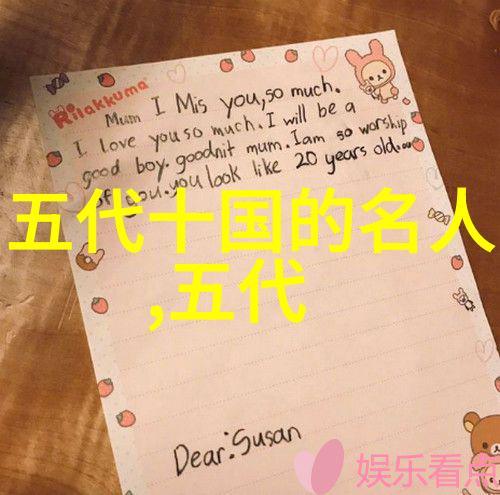 Rilakkuma
Mum I Mis you,so much.
I love you so much. I will be a
good boy. goodnit mum. Iam so worship
of you. you look like 20 years old.
五代十国的名人
,五代
Dear:Susan
娱乐看点